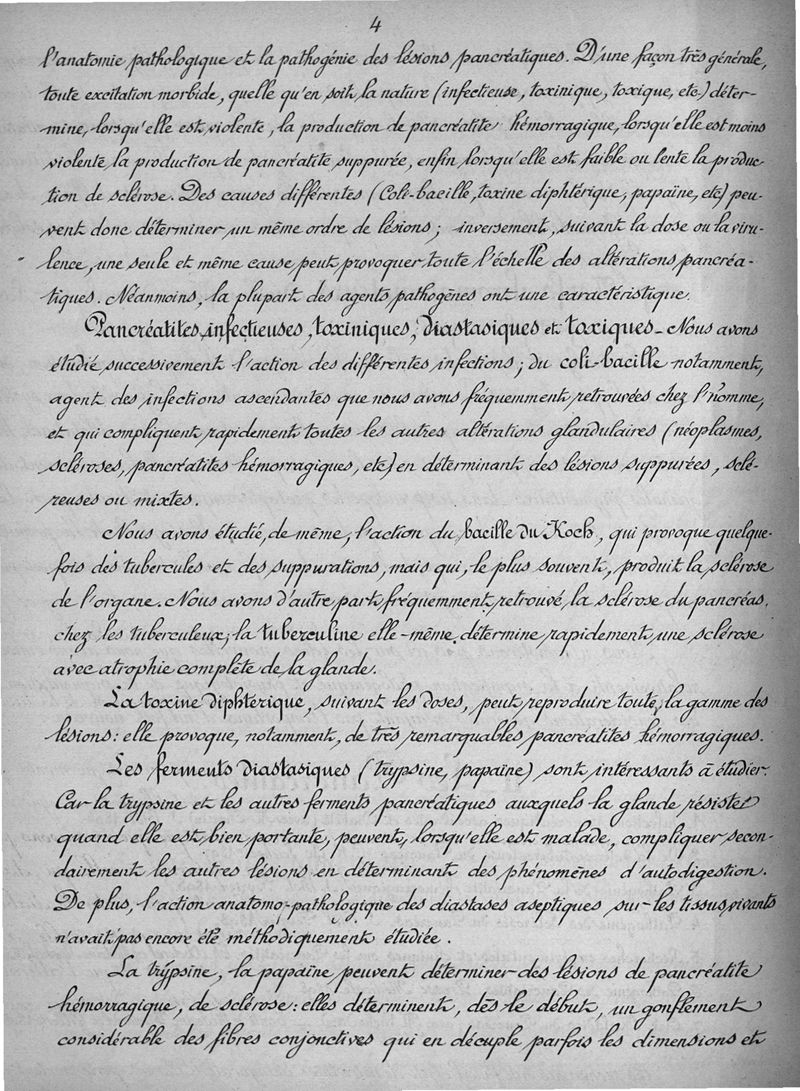 4
l'anatomie pathologique et la pathogénie des lésions pancréatiques. D'une façon très générale,
toute excitation morbide, quelle qu'en soit la nature (infectieuse, toxinique, toxique, etc.) déter-
mine, lorsqu'elle est violente, la production de pancréatite hémorragique, lorsqu'elle est moins
violente la production de pancréatite suppurée, enfin lorsqu'elle est faible ou lente la produc-
tion de sclérose. Des causes différentes (Coli-bacille, toxine diphtérique, papaïne, etc) peu-
vent donc déterminer un même ordre de lésions; inversement, suivant la dose ou la viru-
lence, une seule et même cause peut provoquer toute l'échelle des altérations pancréa-
tiques. Néanmoins, la plupart des agents pathogènes ont une caractéristique.
Pancréatites infectieuses, toxiniques, diastasiques et toxiques - Nous avons
étudié successivement l'action des différentes infections; du coli-bacille notamment,
agent des infections ascendantes que nous avons fréquemment retrouvées chez l'homme,
et qui compliquent rapidement toutes les autres altérations glandulaires (néoplasmes,
scléroses, pancréatites hémorragiques, etc) en déterminant des lésions suppurées, sclé-
reuses ou mixtes.
Nous avons étudié, de même, l'action du bacille du Koch, qui provoque quelque-
fois des tubercules et des suppurations, mais qui, le plus souvent, produit la sclérose
de l'organe. Nous avons d'autre part fréquemment retrouvé la sclérose du pancréas
chez les tuberculeux; la tuberculine elle-même détermine rapidement une sclérose
avec atrophie complète de la glande.
La toxine diphtérique, suivant les doses, peut reproduire toute la gamme des
lésions: elle provoque, notamment, de très remarquables pancréatites hémorragiques.
Les ferments diastasiques (trypsine, papaïne) sont intéressants à étudier.
Car la trypsine et les autres ferments pancréatiques auxquels la glande résiste
quand elle est bien portante, peuvent, lorsqu'elle est malade, compliquer secon-
dairement les autres lésions en déterminant des phénomènes d'autodigestion.
De plus, l'action anatomo-pathologique des diastases aseptiques sur les tissus vivants
n'avait pas encore été méthodiquement étudiée.
La trypsine, la papaïne peuvent déterminer des lésions de pancréatite
hémorragique, de sclérose: elles déterminent, dès le début, un gonflement
considérable des fibres conjonctives qui en décuple parfois les dimensions et